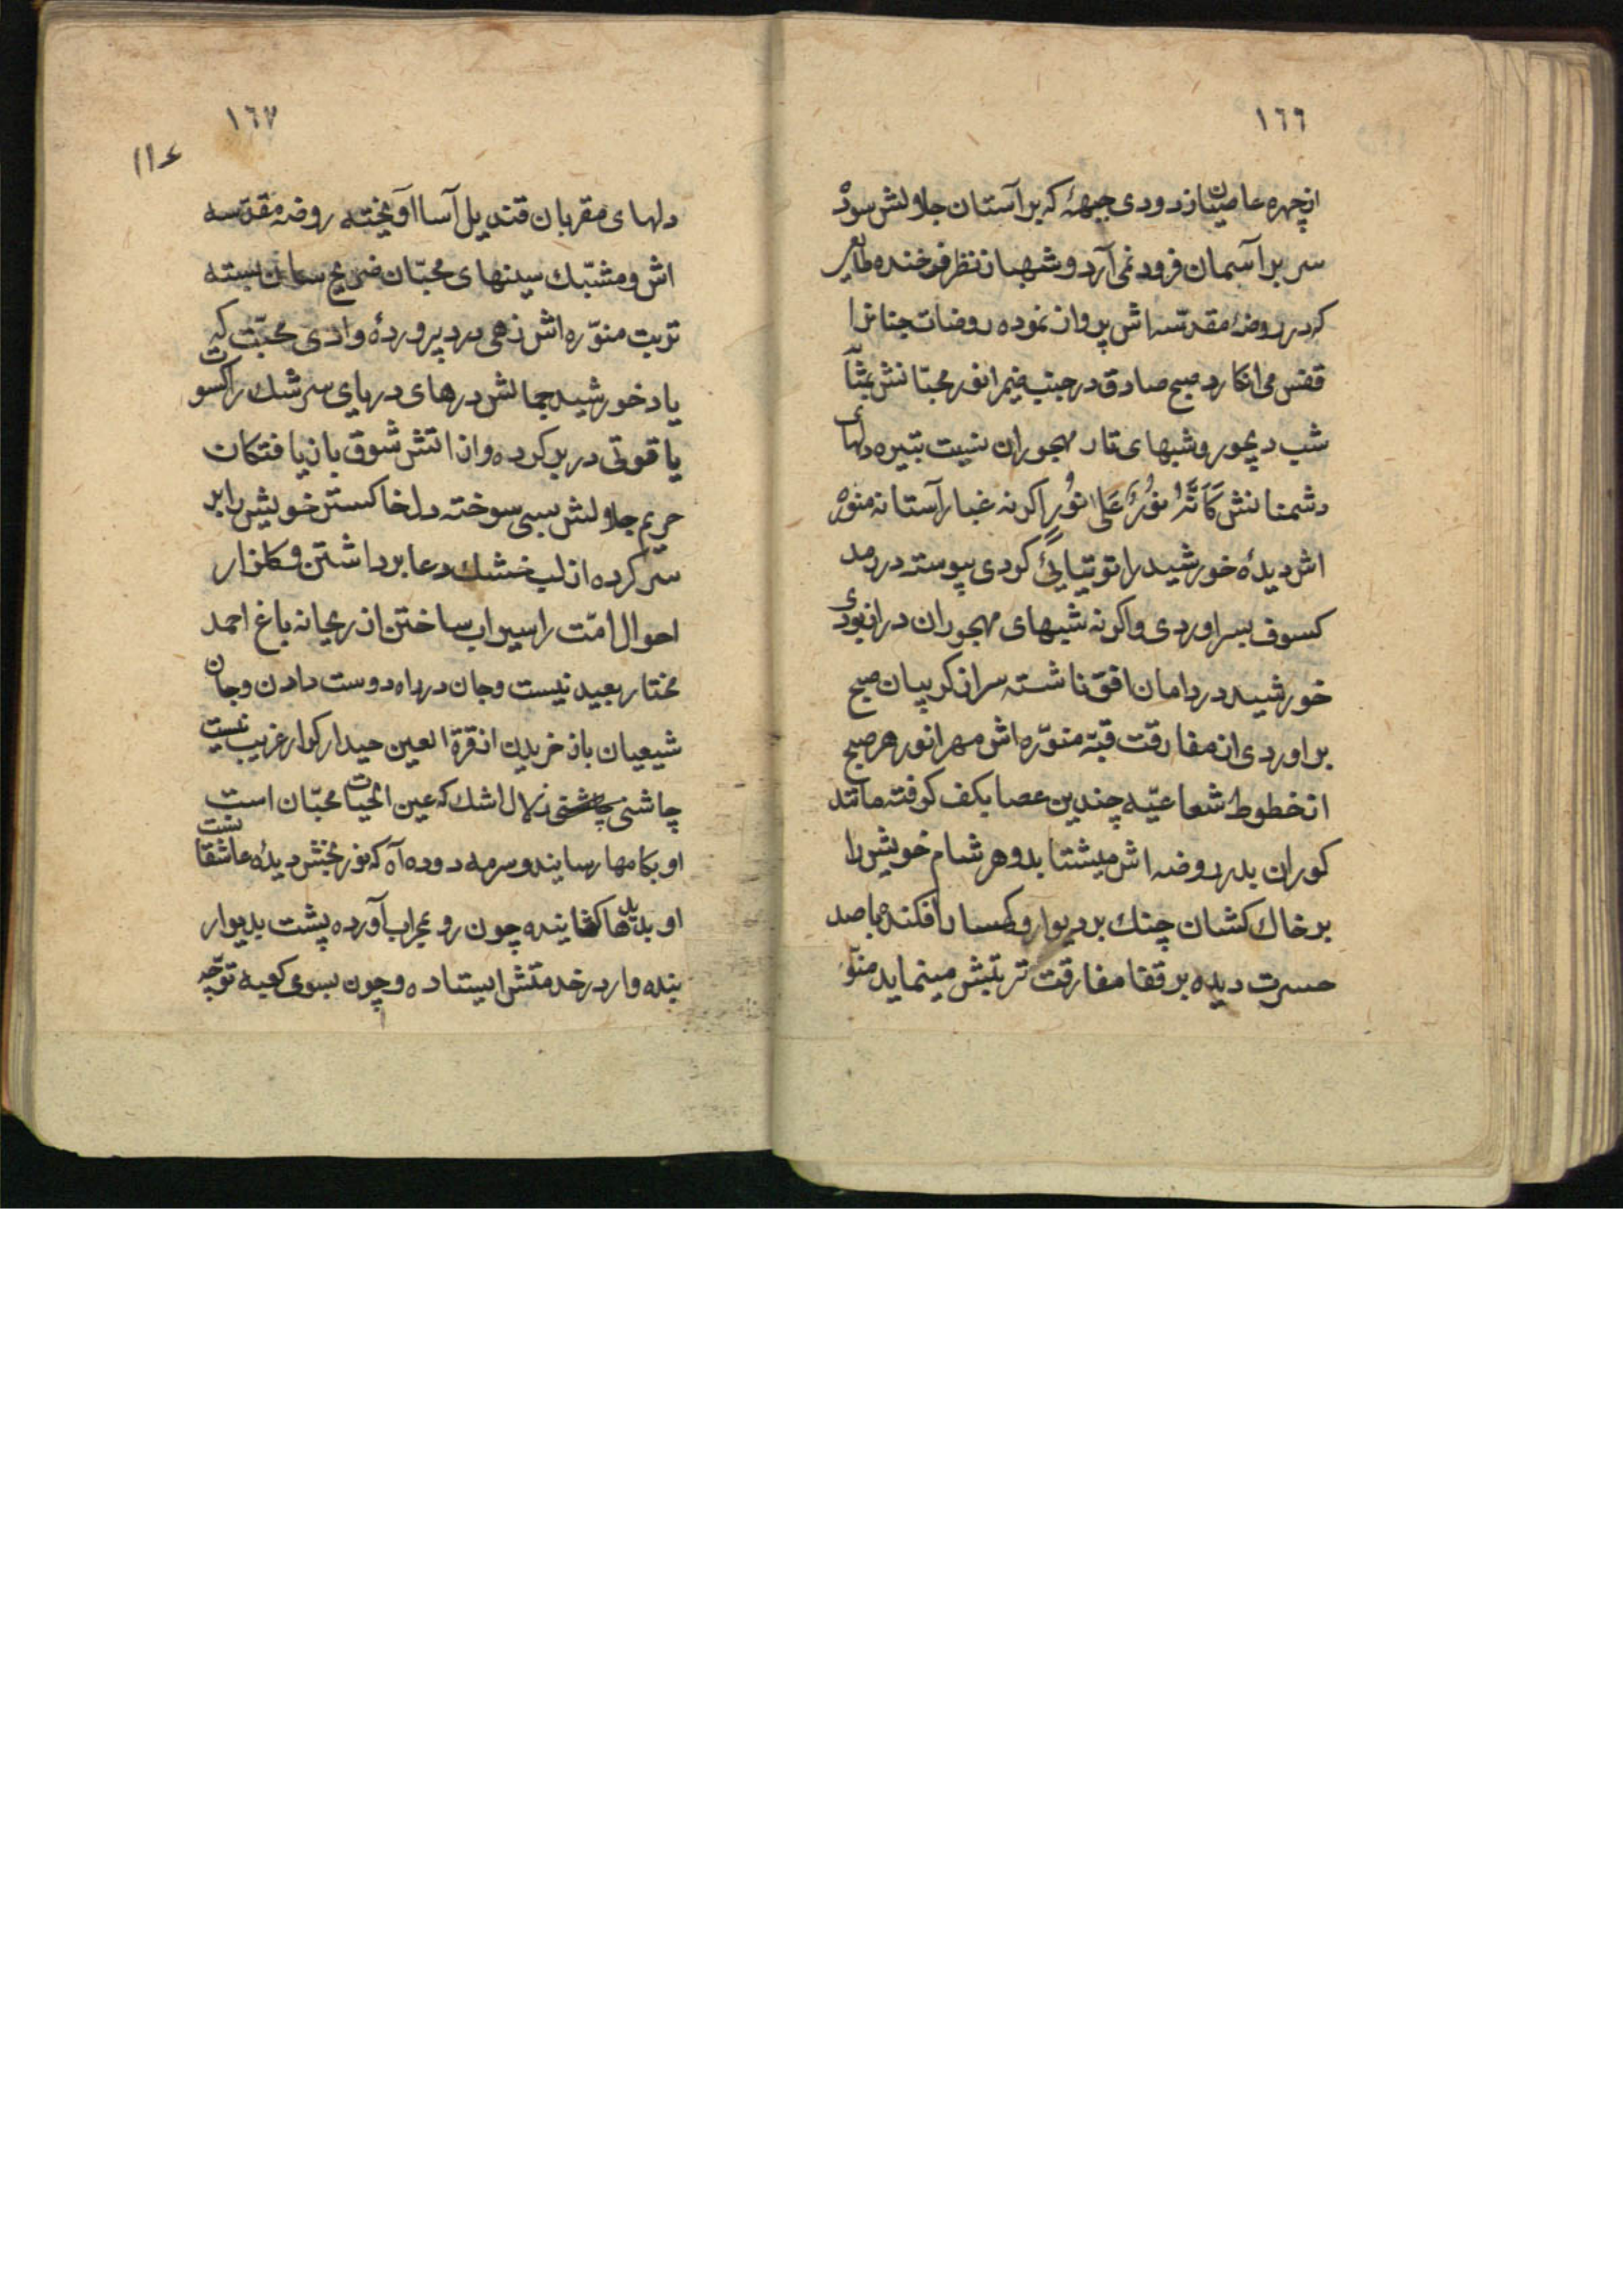 ١٦٦
از چهره عاصیان زدودی جبهۀ که بر آستان جلالش سود
سر بر آسمان فرود نمی‌آرد و شهباز نظر فرخنده طایر
که در روضۀ مقدسه اش پرواز نموده روضات جنانرا
قفس می انکارد صبح صادق در جنب ضمیر انور محبانش بمثآ
شب دیجور و شبهای تار مهجوران بنیت تیره دلهای
دشمنانش كَاَنَّهُ نُورٌ عَلى نُورٍ اکر نه غبار آستانه منوره
اش دیدۀ خورشید را توتیایٔی کردی پیوسته در رمد
کسوف بسر اوردی و اکر نه شبهای مهجوران در از بودی
خورشید در دامان افق ناشسته سر از کریبان صبح
بر اوردی از مفارقت قبّه منوّره اش مهر انور هر صبح
از خطوط شعاعیّه چندین عصا بکف کرفته مانند
کوران بدر روضه اش میشتابد و هر شام خویش را
بر خاك کشان چنك بر دیوار و کهسار افکنده با صد
حسرت دیده بر قفا مفارقت تربتش مینماید منوّ
١٦٧
١١٤
دلهای مقربان قندیل آسا آویخته روضه مقدّسه
اش و مشبّك سینهای محبّان ضریح سان بسته
تربت منوّره اش زهی درد پروردۀ وادی محبّت که
یاد خورشید جمالش درهای دریای سرشك را کسوت
یاقوتی در بر کرده و از اتش شوق باز یافتکان
حریم جلالش سبی سوخته دل خاکستر خویش را بر
سر کرده از لب خشك دعا برداشتن و کلزار
احوال امّت را سیراب ساختن از ریحانه باغ احمد
مختار بعید نیست و جان در راه دوست دادن و جان
شیعیان باز خریدن از قرة العین حیدر کرار غریب نیست
چاشنی زلال اشك که عین الحیات محبّان است
او بکامها رسانیده و سرمه دوده آه که نور بخش دیدۀ عاشقا نست
او بدیدها کشاینده چون رو بمحراب آورده پشت بدیوار
بنده وار در خدمتش ایستاده و چون بسوی کعبه توجّه